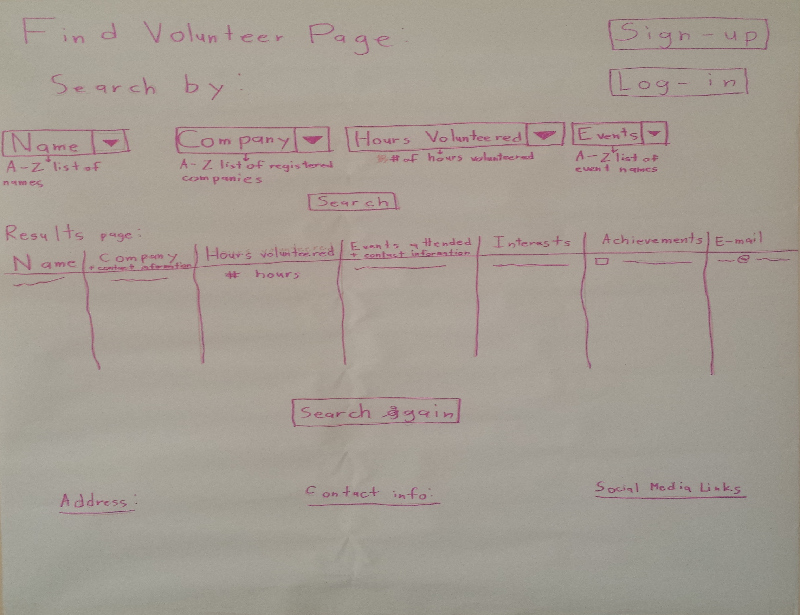 Find Volunteer Page:
Sign-up
Search by:
Log-in
Name
Company
Hours Volunteered
Events
A-Z list of names
A-Z list of registered companies
# of hours volunteered
A-Z list of event names
Search
Results page:
Name
Company + contact information
Hours volunteered
Events attended + contact information
Interests
Achievements
E-mail
# hours
@
Search Again
Address:
Contact info:
Social Media Links